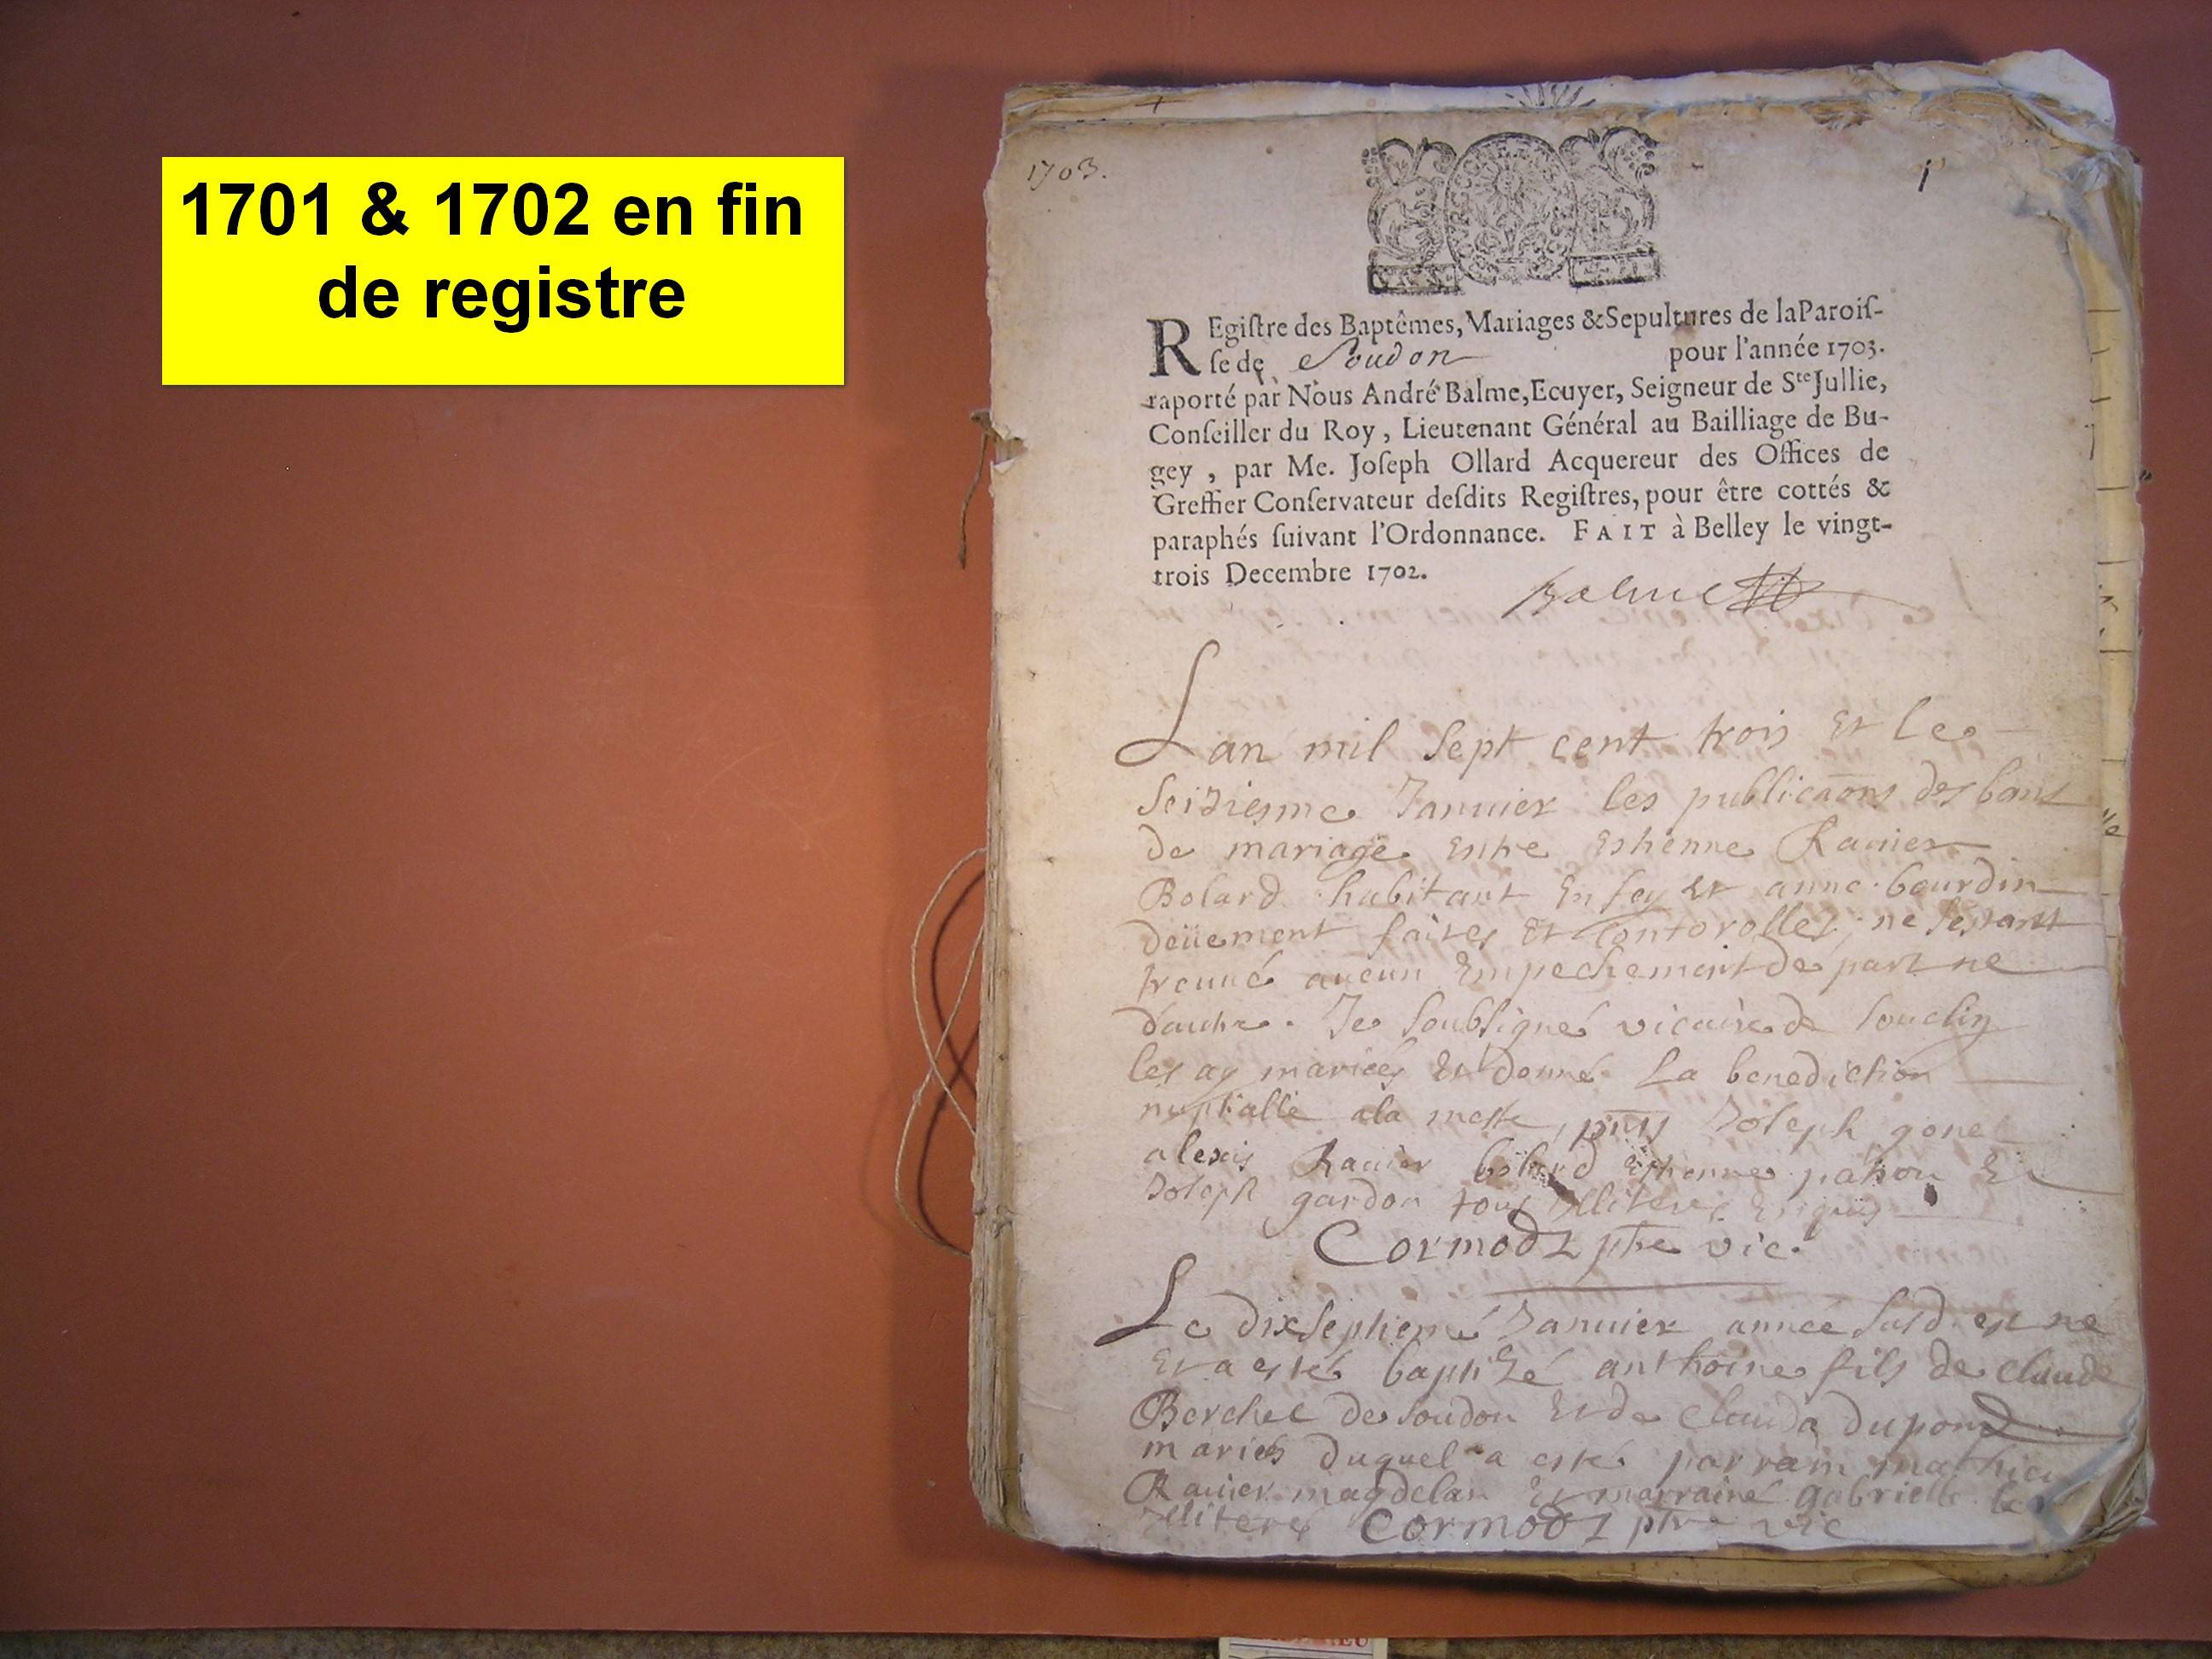 1701 & 1702 en fin
de registre
1703.
1
REgiſtre des Baptêmes, Mariages & Sepultures de la Paroiſ-
ſe de Soudon pour l'année 1703.
raporté par Nous André Balme, Ecuyer, Seigneur de Ste Jullie,
Conſeiller du Roy, Lieutenant Général au Bailliage de Bu-
gey, par Me. Joſeph Ollard Acquereur des Offices de
Greffier Conſervateur deſdits Regiſtres, pour être cottés &
paraphés ſuivant l'Ordonnance. FAIT à Belley le vingt-
trois Decembre 1702.
Balme
Lan mil sept cent trois et le
seiziesme Januier les publicaõns des bans
de mariage entre estienne Rauier
Bolard habitant en et anne bourdin
deüement faites et contorolleés ne sestant
trouué aucun empechement de part ne
dautre. Je soubsigné vicaire de souclin
les ay mariés et donné la benediction
nuptialle ala messe, pñts Joseph gone
alexis Rauier bolard estienne et
Joseph gardon tous illiteres enquis
Cormodz ptre vic.
Le dixseptieme Januier année susd. est né
et a esté baptizé anthoine fils de claude
Berchet de soudon et de clauda dupond
mariés duquel a esté parrain mathieu
Rauier magdelan et marraine gabrielle ber
illiterés Cormodz ptre vic